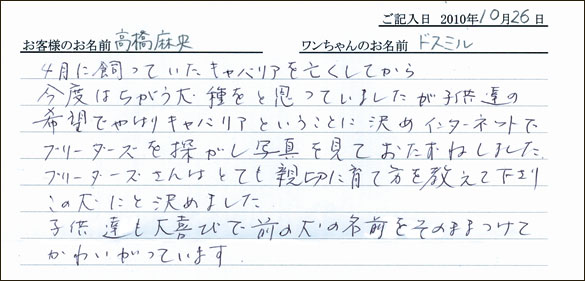 ご記入日 2010年10月26日
お客様のお名前 高橋麻央 ワンちゃんのお名前 ドスミル
4月に飼っていたキャバリアを亡くしてから
今度はちがう犬種をと思っていましたが子供達の
希望でやはりキャバリアということに決めインターネットで
ブリーダーズを探がし写真を見ておたずねしました。
ブリーダーズさんはとても親切に育て方を教えて下さり
この犬にと決めました。
子供達も大喜びで前の犬の名前をそのままつけて
かわいがっています。